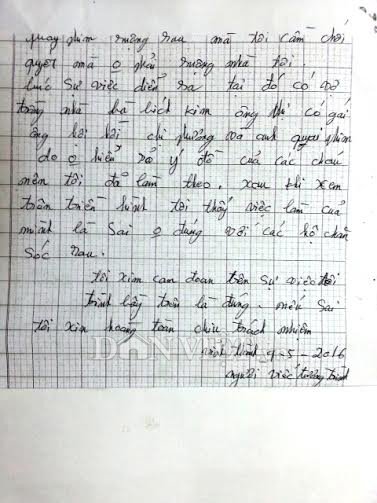 quay phim ruộng rau mà tôi cầm chổi
quyét mà o phải ruộng nhà tôi.
lúc sự việc diễn ra tại đó có vợ
trồng nhà bà lịch kim ông thi có gái
ông hồi hồi chị phương và anh quai phim
do o hiểu rỏ ý đồ của các cháu
nên tôi đã làm theo. xau khi xem
trên truền hình tôi thấy việc làm của
mình là sai o đúng với các hộ chăn
sóc rau.
tôi xin cam đoan trên sự việc tôi
trình bầy trên là đúng. nếu sai
tôi xin hoàng toàn chiu trách nhiệm
DANVIET
9-5-2016
người viết tường trình